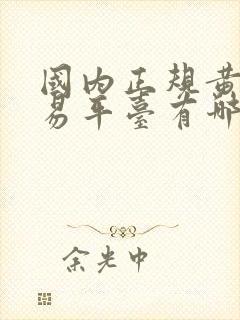 國内正規黄
易平臺有哪
余光中